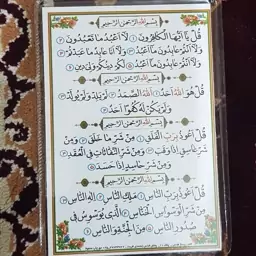 بِسْمِ اللهِ الرَّحْمٰنِ الرَّحِيمِ
قُلْ يَا أَيُّهَا الْكَافِرُونَ ۝ لَا أَعْبُدُ مَا تَعْبُدُونَ ۝
وَلَا أَنْتُمْ عَابِدُونَ مَا أَعْبُدُ ۝ وَلَا أَنَا عَابِدٌ مَا عَبَدْتُمْ ۝
وَلَا أَنْتُمْ عَابِدُونَ مَا أَعْبُدُ ۝ لَكُمْ دِينُكُمْ وَلِيَ دِينِ ۝
بِسْمِ اللهِ الرَّحْمٰنِ الرَّحِيمِ
قُلْ هُوَ اللهُ أَحَدٌ ۝ اللهُ الصَّمَدُ ۝ لَمْ يَلِدْ وَلَمْ يُولَدْ ۝
وَلَمْ يَكُنْ لَهُ كُفُوًا أَحَدٌ ۝
بِسْمِ اللهِ الرَّحْمٰنِ الرَّحِيمِ
قُلْ أَعُوذُ بِرَبِّ الْفَلَقِ ۝ مِنْ شَرِّ مَا خَلَقَ ۝ وَمِنْ
شَرِّ غَاسِقٍ إِذَا وَقَبَ ۝ وَمِنْ شَرِّ النَّفَّاثَاتِ فِي الْعُقَدِ ۝
وَمِنْ شَرِّ حَاسِدٍ إِذَا حَسَدَ ۝
بِسْمِ اللهِ الرَّحْمٰنِ الرَّحِيمِ
قُلْ أَعُوذُ بِرَبِّ النَّاسِ ۝ مَلِكِ النَّاسِ ۝ إِلٰهِ النَّاسِ ۝
مِنْ شَرِّ الْوَسْوَاسِ الْخَنَّاسِ ۝ الَّذِي يُوَسْوِسُ فِي
صُدُورِ النَّاسِ ۝ مِنَ الْجِنَّةِ وَالنَّاسِ ۝